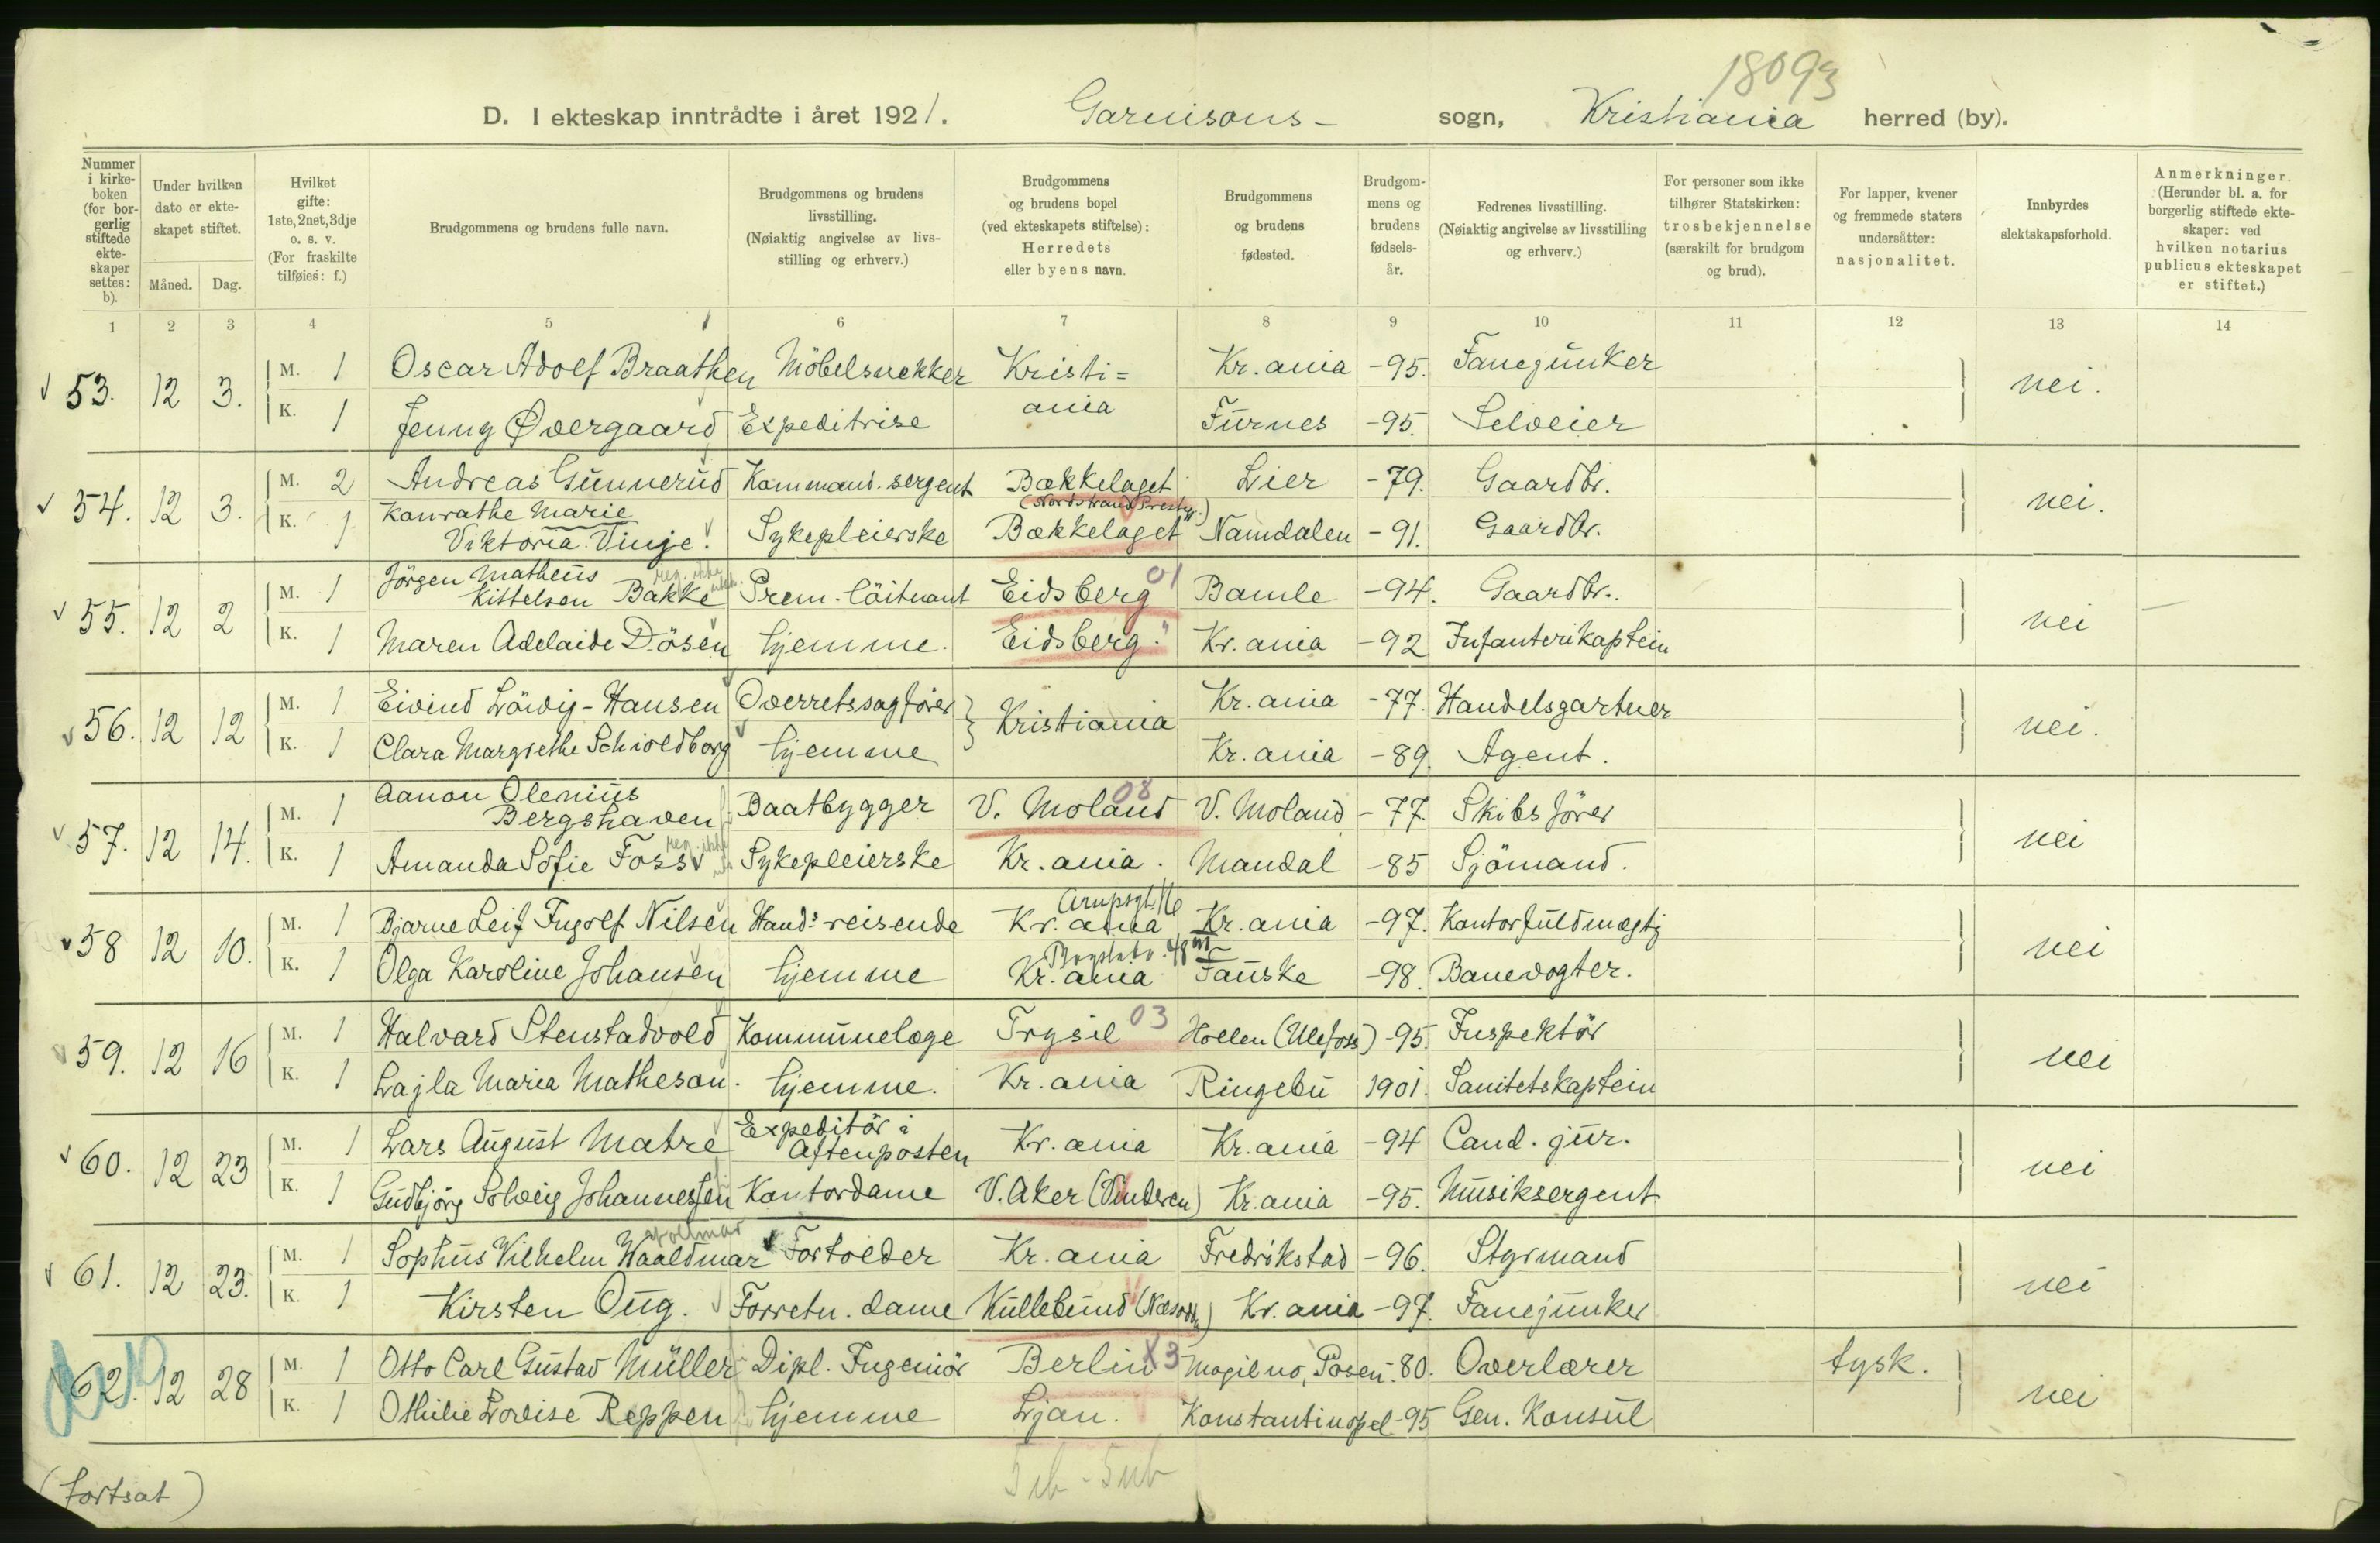 18093
D. I ekteskap inntrådte i året 1921. Garnisons- sogn, Kristiania herred (by).
Nummer i kirkeboken (for borgerlig stiftede ekteskaper settes: b).
Under hvilken dato er ekteskapet stiftet.
Måned. Dag.
Hvilket gifte: 1ste, 2net, 3dje o. s. v. (For fraskilte tilføies: f.)
Brudgommens og brudens fulle navn.
Brudgommens og brudens livsstilling. (Nøiaktig angivelse av livsstilling og erhverv.)
Brudgommens og brudens bopel (ved ekteskapets stiftelse): Herredets eller byens navn.
Brudgommens og brudens fødested.
Brudgommens og brudens fødselsår.
Fedrenes livsstilling. (Nøiaktig angivelse av livsstilling og erhverv.)
For personer som ikke tilhører Statskirken: trosbekjennelse (særskilt for brudgom og brud).
For lapper, kvener og fremmede staters undersåtter: nasjonalitet.
Innbyrdes slektskapsforhold.
Anmerkninger. (Herunder bl. a. for borgerlig stiftede ekteskaper: ved hvilken notarius publicus ekteskapet er stiftet.)
1 2 3 4 5 6 7 8 9 10 11 12 13 14
53. 12 3. M. 1 Oscar Adolf Braathen Möbelsnekker Kristi= Kr.ania -95. Fanejunker nei.
K. 1 Jenny Øvergaard Expeditrise ania Furnes -95. Selveier
54. 12 3. M. 2 Andreas Gunnerud Kommand. sergent Bækkelaget Lier -79. Gaardbr. nei.
(Nordstrand Prestgj.)
K. 1 Konrathe Marie Viktoria Vinje. Sykepleierske Bækkelaget Namdalen -91. Gaardbr.
55. 12 2 M. 1 Jörgen Matheus Kittelsen Bakke Prem. löitnant Eidsberg 01 Bamle -94. Gaardbr. nei
K. 1 Maren Adelaide Dösen hjemme. Eidsberg " Kr.ania -92 Infanterikaptein
56. 12 12 M. 1 Eivind Lövig-Hansen Overretssagförer Kristiania Kr.ania -77. Handelsgartner nei.
K. 1 Clara Margrethe Schioldborg hjemme Kr.ania -89. Agent.
57. 12 14. M. 1 Aanon Olenius Bergshaven Baatbygger V. Moland 08 V. Moland -77. Skibsförer nei
K. 1 Amanda Sofie Foss Sykepleierske Kr.ania. Mandal -85 Sjömand.
58 12 10. M. 1 Bjarne Leif Ingolf Nilsen Hands reisende Kr.ania Arupsgt. 16 Kr.ania -97. Kontorfuldmægtig nei
K. 1 Olga Karoline Johansen hjemme Kr.ania Fauske -98. Banevogter.
59. 12 16 M. 1 Halvard Stenstadvold Kommunelæge Trysil 03 Hollen (Ulefoss) -95. Inspektör nei
K. 1 Lajla Maria Matheson. hjemme. Kr.ania Ringebu 1901. Sanitetskaptein
60. 12 23 M. 1 Lars August Matre Expeditör i Aftenposten Kr.ania Kr.ania -94 Cand. jur. nei
K. 1 Gudbjörg Solveig Johannessen Kontordame V. Aker (Vinderen) Kr.ania -95. Musiksergent
61. 12 23. M. 1 Sophus Vilhelm Waaldmar Vollmar Fortolder Kr.ania Fredrikstad -96. Styrmand nei
K. 1 Kirsten Oug. Forretn. dame Kullebund (Nesodden) Kr.ania -97. Fanejunker
62. 12 28 M. 1 Otto Carl Gustav Müller Dipl. Ingeniör Berlin X3 Mogilno, Posen -80. Overlærer tysk. nei
K. 1 Othilie Lovise Reppen hjemme Ljan. Konstantinopel -95 Gen. Konsul
(fortsat)